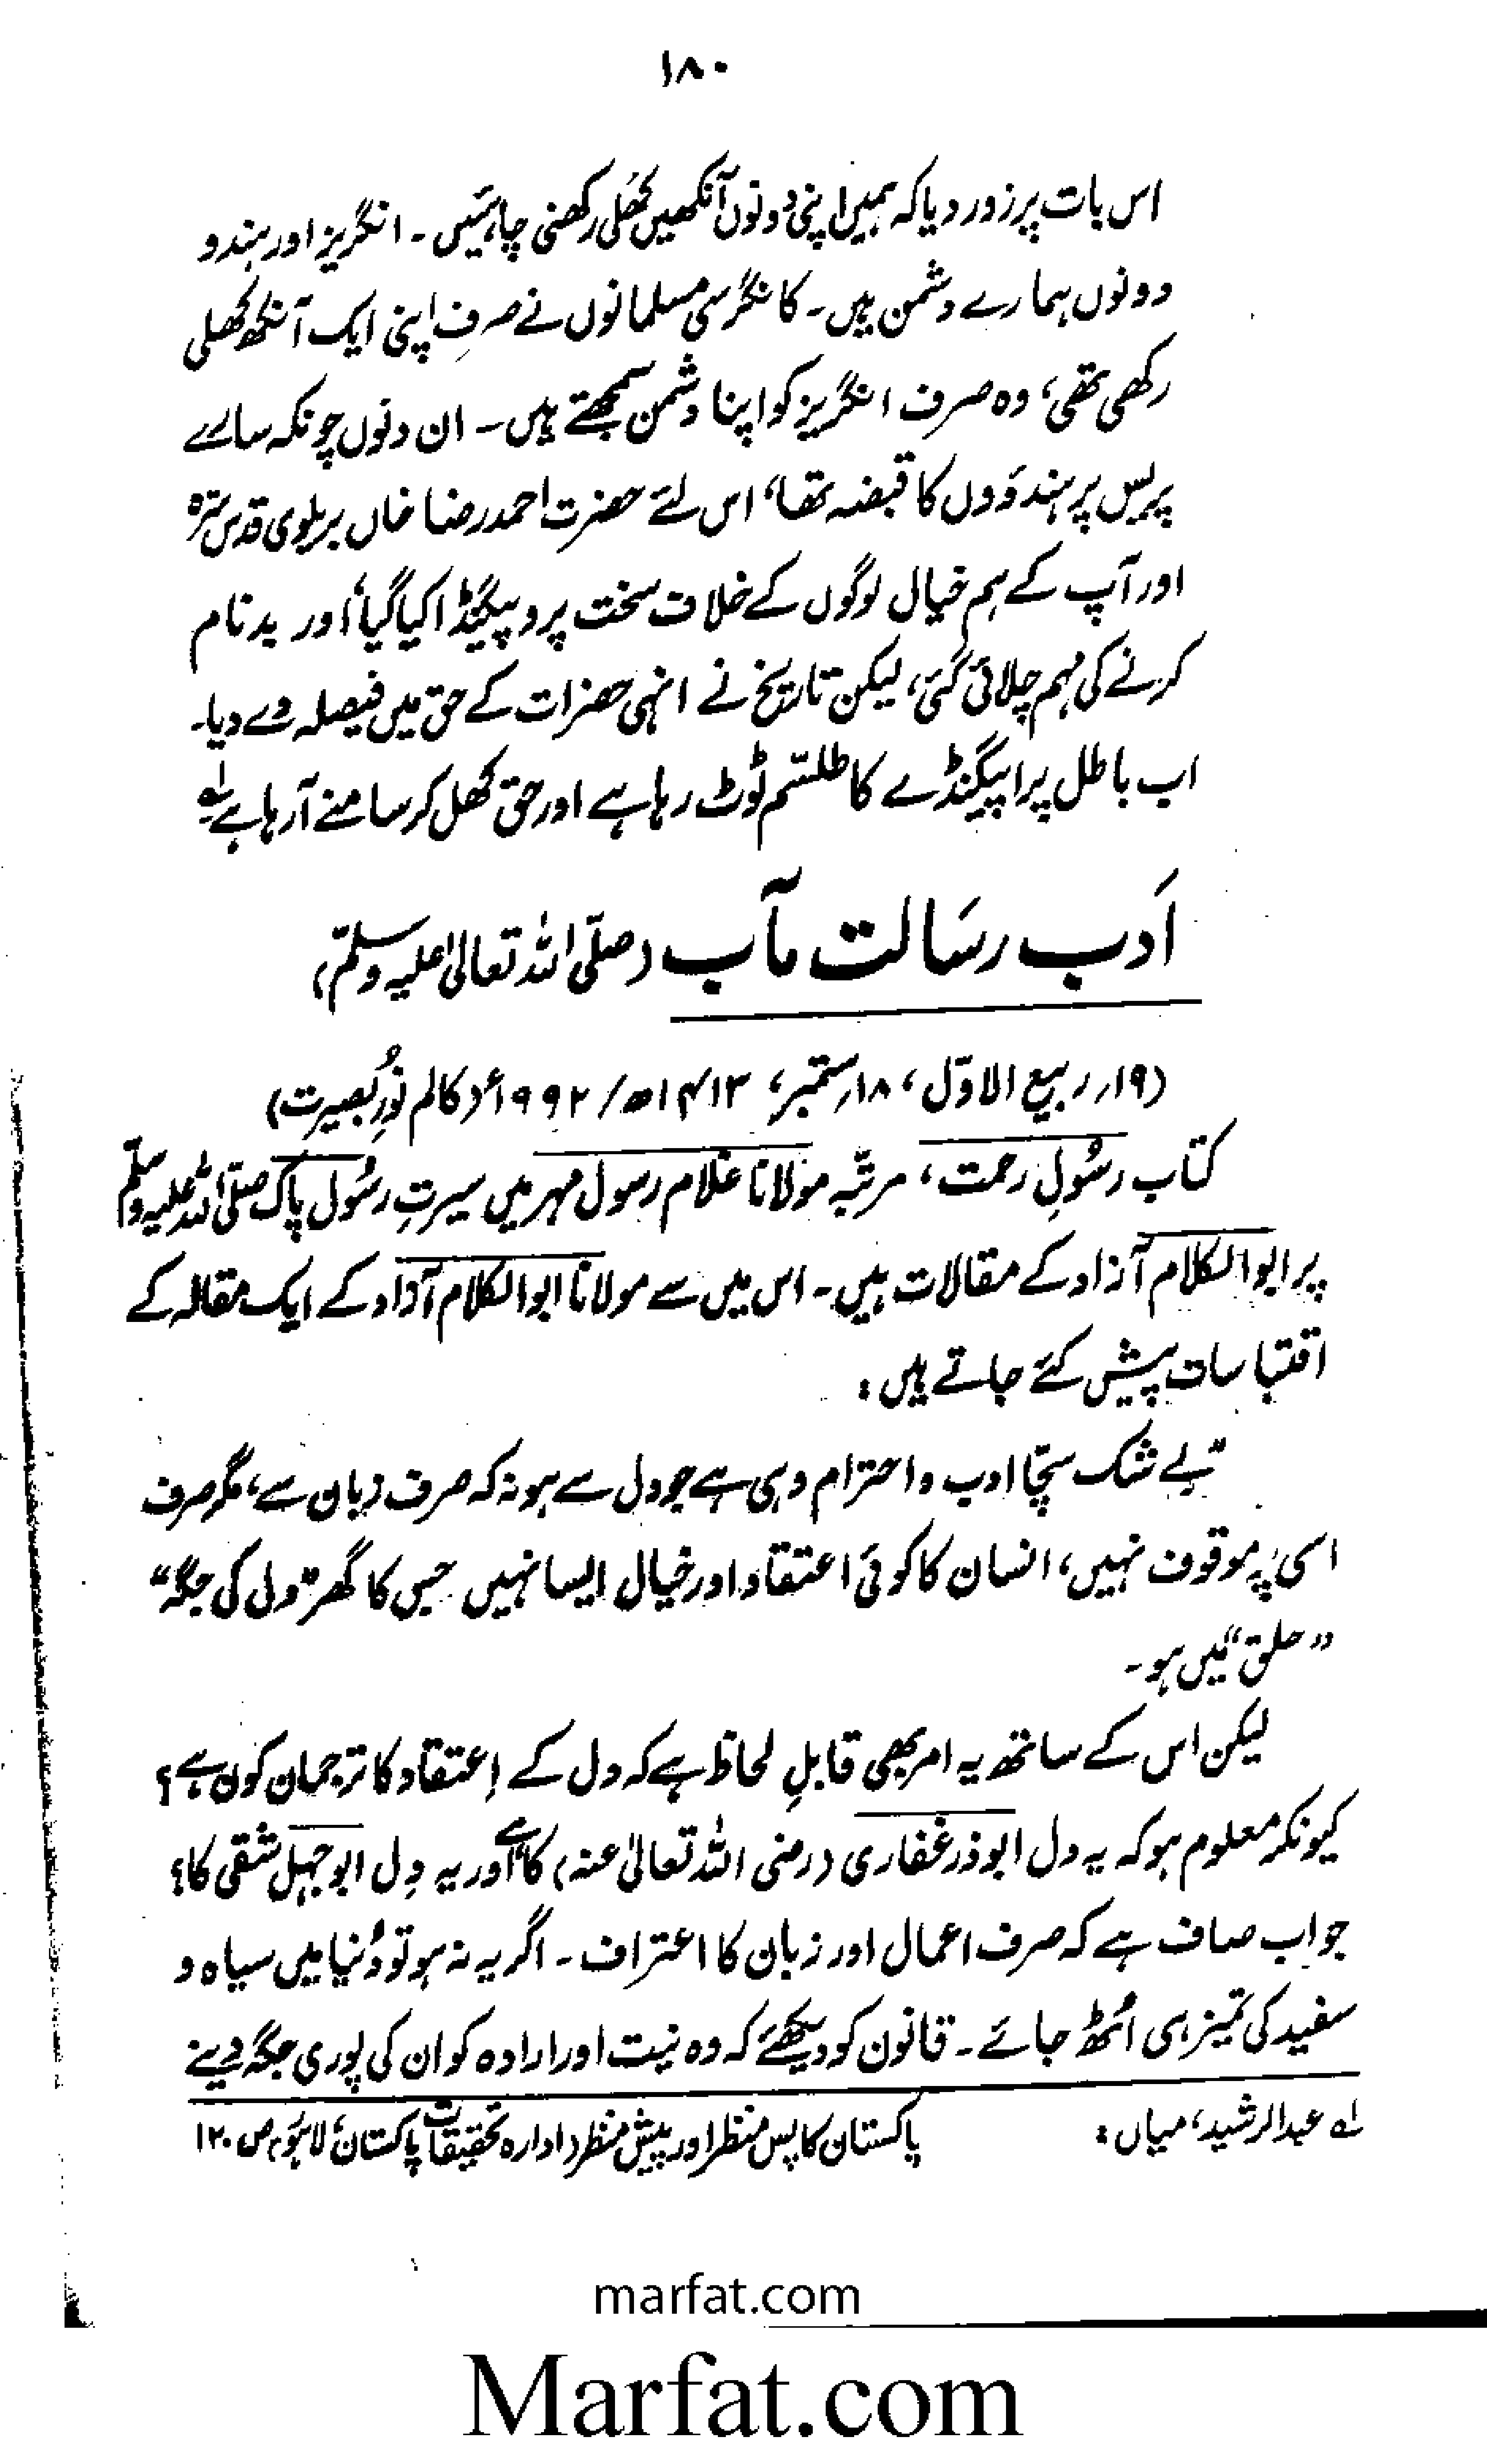 ۱۸۰
اس بات پر زور دیا کہ ہمیں اپنی دونوں آنکھیں کھُلی رکھنی چاہئیں۔ انگریز اور ہندو
دونوں ہمارے دشمن ہیں۔ کانگرسی مسلمانوں نے صرف اپنی ایک آنکھ کھلی
رکھی تھی، وہ صرف انگریز کو اپنا دشمن سمجھتے ہیں۔ ان دنوں چونکہ سارے
پریس پر ہندوؤں کا قبضہ تھا، اس لئے حضرت احمد رضا خاں بریلوی قدس سّرہ
اور آپ کے ہم خیال لوگوں کے خلاف سخت پروپیگنڈا کیا گیا، اور بدنام
کرنے کی مہم چلائی گئی، لیکن تاریخ نے انہی حضرات کے حق میں فیصلہ دے دیا۔
اب باطل پراپیگنڈے کا طلسّم ٹوٹ رہا ہے اور حق کھل کر سامنے آ رہا ہے۔ لہ
اَدب رسَالت مآب (صلّی اللہ تعالیٰ علیہ وسلّم)
(۱۹؍ ربیع الاوّل، ۱۸؍ ستمبر، ۱۴۱۳ھ/ ۱۹۹۲ء (کالم نُورِ بصیرت)
کتاب رسُولِ رحمت، مرتّبہ مولانا غلام رسول مہر میں سیرتِ رسُول پاک صلّی اللہ علیہ وسلّم
پر ابوالکلام آزاد کے مقالات ہیں۔ اس میں سے مولانا ابوالکلام آزاد کے ایک مقالہ کے
اقتباسات پیش کئے جاتے ہیں:
"بے شک سچّا ادب و احترام وہی ہے جو دل سے ہو نہ کہ صرف زبان سے، مگر صرف
اسی پر موقوف نہیں، انسان کا کوئی اعتقاد اور خیال ایسا نہیں جس کا گھر "دل کی جگہ"
"حلق" میں ہو۔
لیکن اس کے ساتھ یہ امر بھی قابلِ لحاظ ہے کہ دل کے اِعتقاد کا ترجمان کون ہے؟
کیونکر معلوم ہو کہ یہ دل ابوذر غفاری (رضی اللہ تعالیٰ عنہ) کا ہے اور یہ دِل ابوجہل شقی کا؟
جواب صاف ہے کہ صرف اعمال اور زبان کا اعتراف۔ اگر یہ نہ ہو تو دُنیا میں سیاہ و
سفید کی تمیز ہی اُٹھ جائے۔ قانون کو دیکھئے کہ وہ نیت اور ارادہ کو ان کی پوری جگہ دینے
لہ عبدالرشید، میاں: پاکستان کا پس منظر اور پیش منظر (ادارہ تحقیقات پاکستان، لاہور) ص ۱۲۰
marfat.com
Marfat.com